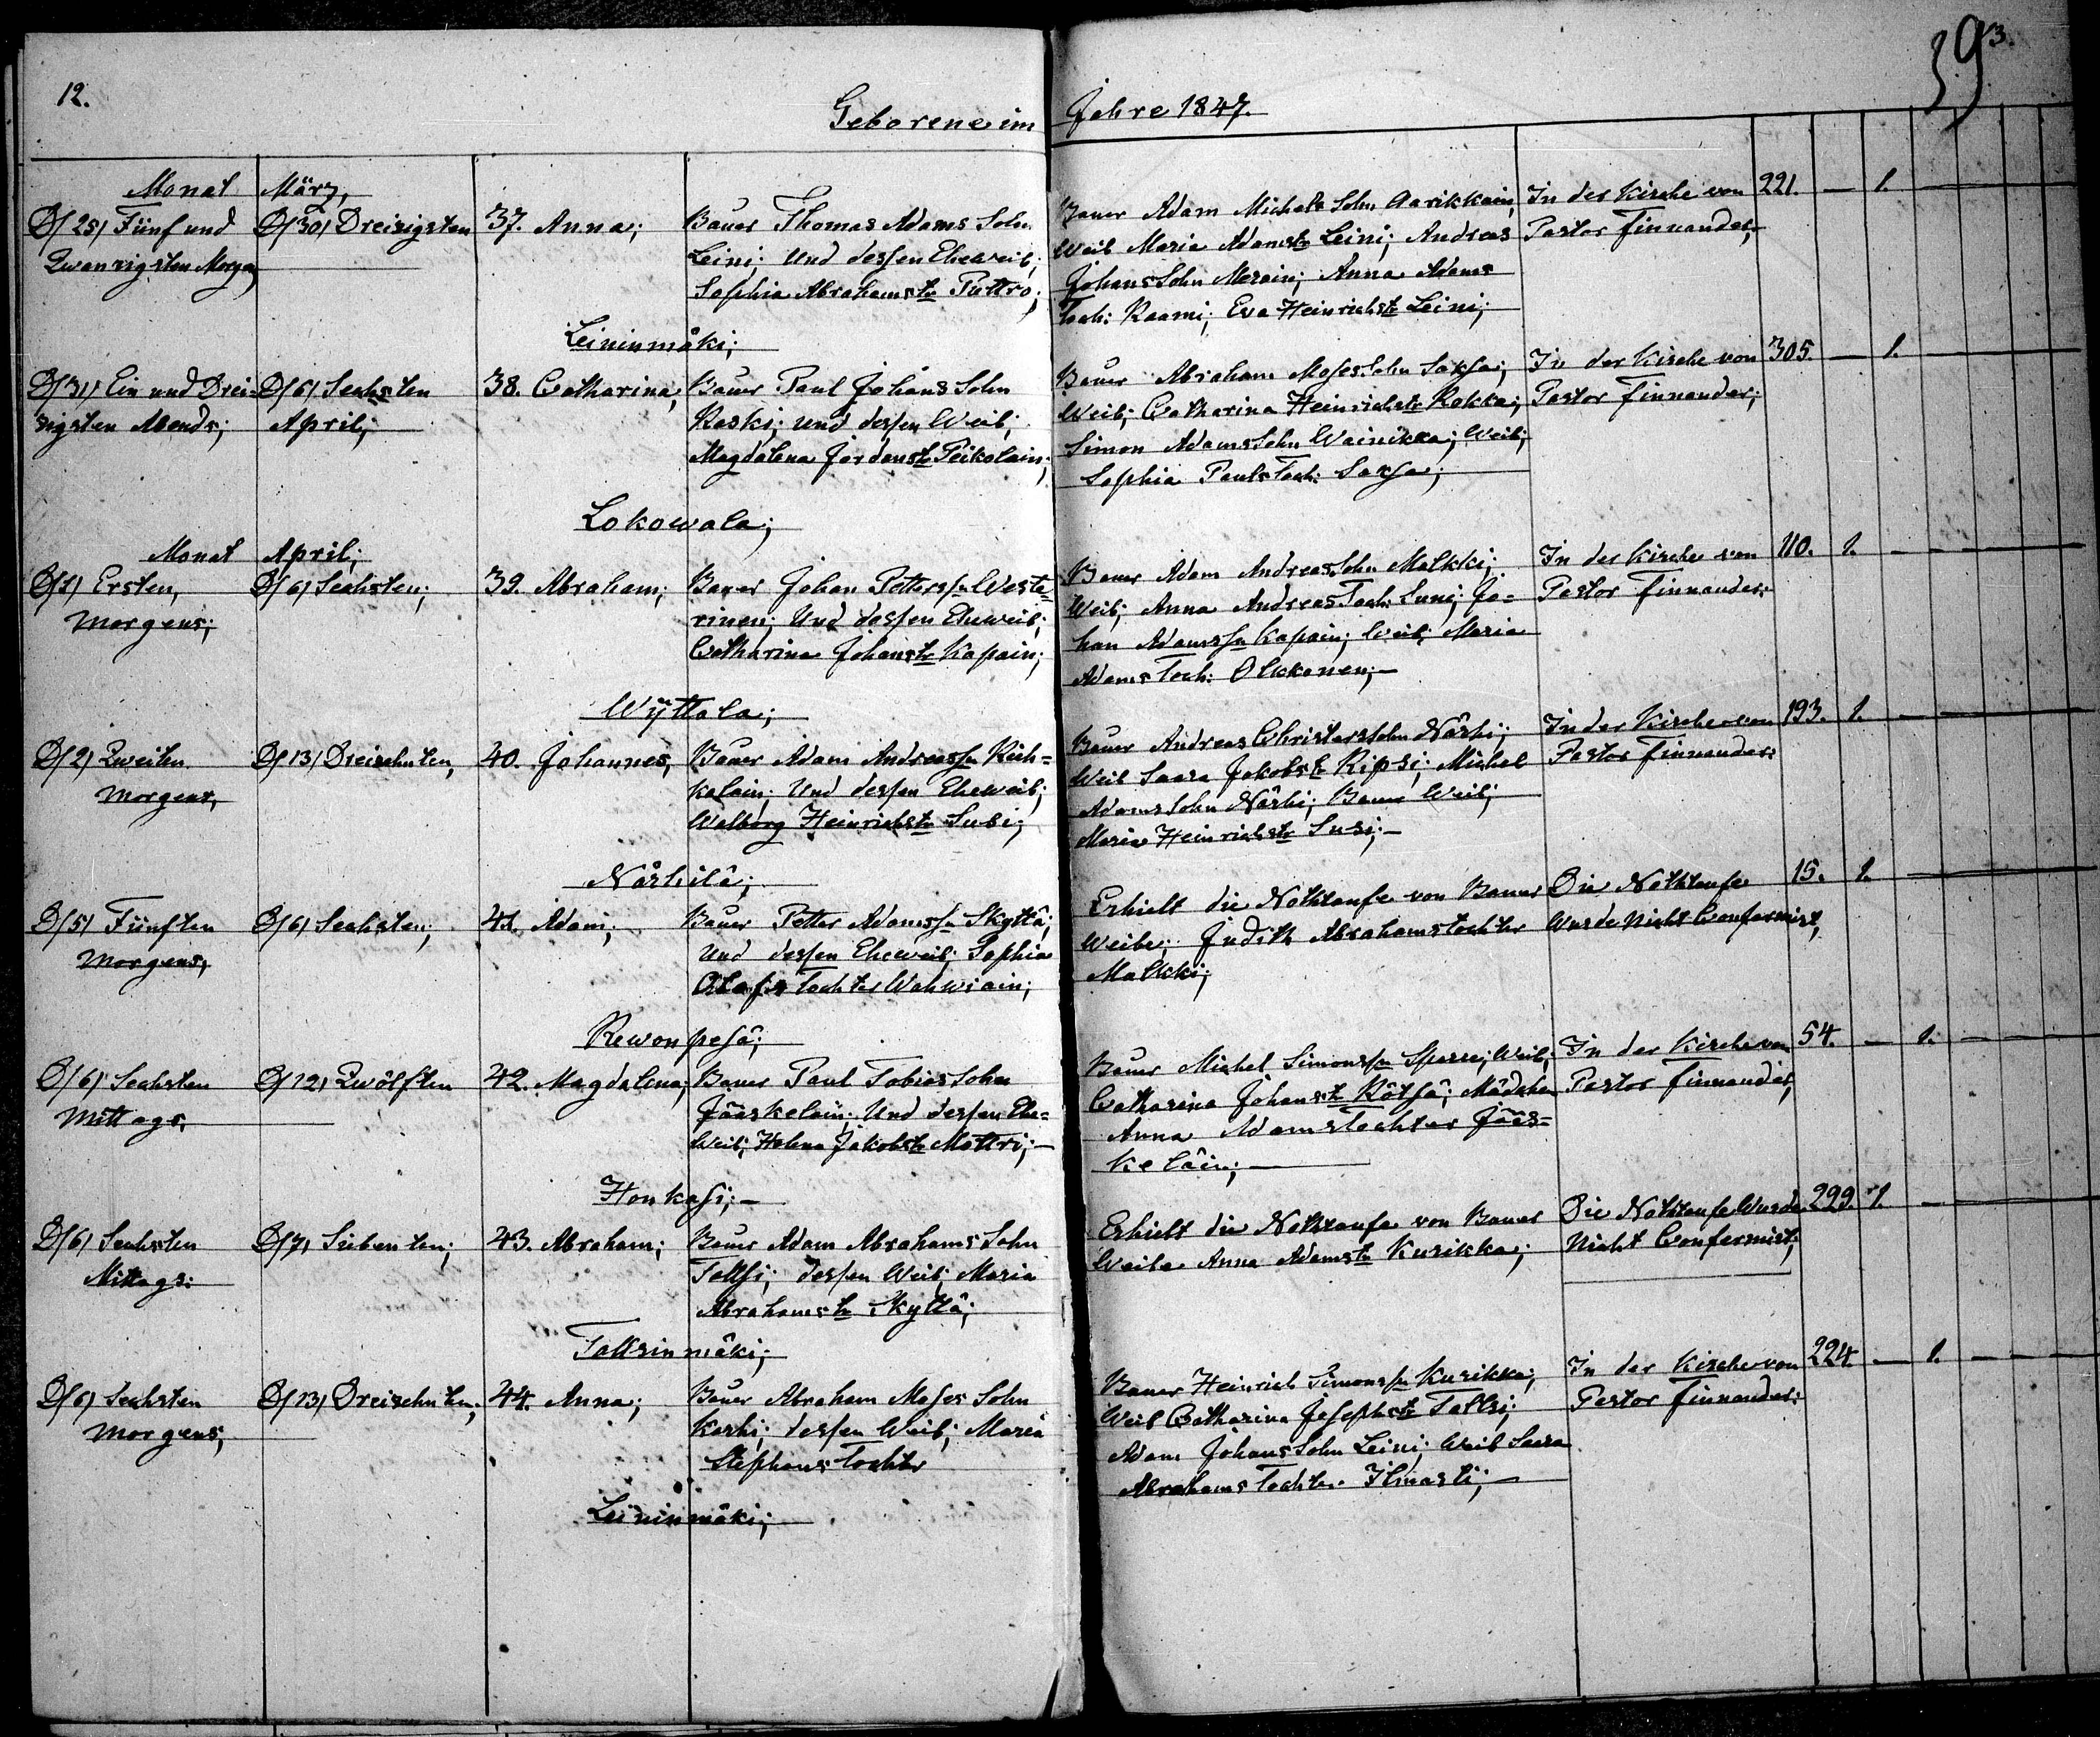 12.
393.
Geborene im Jahre 1847.
Monat März,
D/25/ Fünf und D/30/ Dreisigsten 37. Anna; Bauer Thomas Adams Sohn
Zwanzigsten Morgen Leini; Und dessen Eheweib;
Sophia Abrahamstr Puttro;
Bauer Adam Michels Sohn Aarikkain, In der Kirche von 221. — 1.
Weib Maria Adamstr Leini; Andreas Pastor Finnander;
Johans Sohn Merain; Anna Adams
Toch: Raami; Eva Heinrichstr Leini;
Leininmäki;
D/31/ Ein und Drei= D/6/ Sechsten 38. Catharina, Bauer Paul Johans Sohn
sigsten Abends; April; Koski; und dessen Weib;
Magdalena Jordanstr Peikolain;
Bauer Abraham Moses Sohn Saxsa; In der Kirche von 305. — 1.
Weib; Catharina Heinrichstr Rokka; Pastor Finnander;
Simon Adams Sohn Wainikka; Weib;
Sophia Pauls Toch: Saxsa;
Lokowala;
Monat April;
D/1/ Ersten, D/6/ Sechsten; 39. Abraham; Bauer Johan PettersSn Weste=
Morgens; rinen; Und dessen Eheweib;
Catharina Johanstr Kapain;
Bauer Adam Andreas Sohn Malkki; In der Kirche von 110. 1. —
Weib; Anna Andreas Toch: Suni; Jo= Pastor Finnander:
han AdamsSn Kapain; Weib; Maria
Adams Toch: Olkkonen; —
Wÿttala;
D/2/ Zweiten D/13/ Dreizehnten, 40. Johannes, Bauer Adam AndreasSn Kuh=
Morgens, kalain; Und dessen Eheweib;
Walborg Heinrichstr Susi;
Bauer Andreas Christers Sohn Närhi; In der Kirche von 193. 1. —
Weib Saara Jakobstr Ripsi; Michel Pastor Finnander:
Adams Sohn Närhi; Bauer Weib;
Maria Heinrichstr Susi; —
Närhilä;
D/5/ Fünften D/6/ Sechsten; 41. Adam; Bauer Petter AdamsSn Skyttä;
Morgens, Und dessen Eheweib; Sophia
Olafs Tochter Wahwiain;
Erhielt die Nothtaufe von Bauer Die Nothtaufe 15. 1. —
Weibe; Judith Abrahamstochter Wurde Nicht Confermirt,
Malkki;
Rewonpesä;
D/6/ Sechsten D/12/ Zwölften 42. Magdalena; Bauer Paul Tobias Sohn
Mittags, Jääskeläin; Und dessen Ehe=
Weib; Helena Jakobstr Mottri; —
Bauer Michel SimonsSn Sparre; Weib; In der Kirche von 54. — 1. —
Catharina Johanstr Rötsä; Mädchen Pastor Finnander,
Anna Adams Tochter Jääs=
keläin; —
Honkasi; —
D/6/ Sechsten D/7/ Siebenten; 43. Abraham; Bauer Adam Abrahams Sohn
Mittags: Tallsi; dessen Weib; Maria
Abrahamstr Skyttä;
Erhielt die Nothtaufe von Bauer Die Nothtaufe Wurde 299. 1. —
Weibe Anna Adamstr Kurikka; Nicht Confermirt;
Tallsinmäki;
D/6/ Sechsten D/13/ Dreizehnten; 44. Anna; Bauer Abraham Moses Sohn
Morgens, Karhi; dessen Weib; Maria
Stephans Tochter
Bauer Heinrich SimonsSn Kurikka; In der Kirche von 224. — 1. —
Weib Catharina Josephstr Tallsi; Pastor Finnander:
Adam Johans Sohn Leini; Weib Saara
Abrahams Tochter Ilmasti; —
Leininmäki;